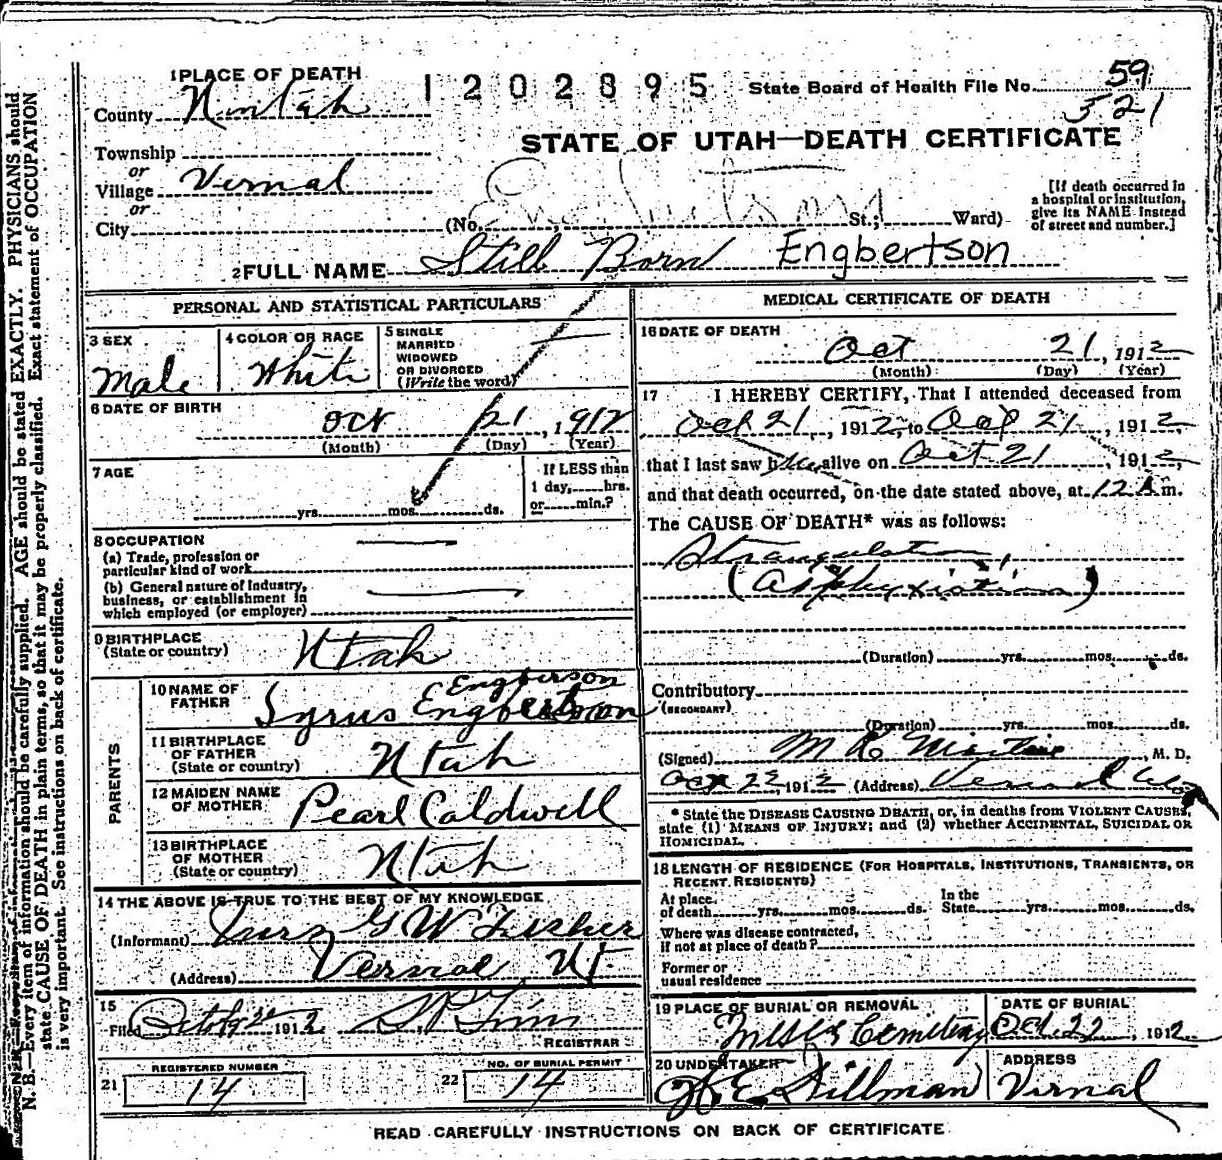 1 PLACE OF DEATH
1202895
State Board of Health File No. 59
521
County Uintah
STATE OF UTAH—DEATH CERTIFICATE
Township
or
Village Vernal
or
City
(No. St.; Ward)
[If death occurred in
a hospital or institution,
give its NAME instead
of street and number.]
2 FULL NAME Still Born Engbertson
PERSONAL AND STATISTICAL PARTICULARS
3 SEX
Male
4 COLOR OR RACE
White
5 SINGLE
MARRIED
WIDOWED
OR DIVORCED
(Write the word)
6 DATE OF BIRTH
Oct 21, 1912
(Month) (Day) (Year)
7 AGE
yrs. mos. ds.
If LESS than
1 day, hrs.
or min.?
8 OCCUPATION
(a) Trade, profession or
particular kind of work
(b) General nature of industry,
business, or establishment in
which employed (or employer)
9 BIRTHPLACE
(State or country)
Utah
PARENTS
10 NAME OF
FATHER
Engberson
Syrus Engbertson
11 BIRTHPLACE
OF FATHER
(State or country)
Utah
12 MAIDEN NAME
OF MOTHER
Pearl Caldwell
13 BIRTHPLACE
OF MOTHER
(State or country)
Utah
14 THE ABOVE IS TRUE TO THE BEST OF MY KNOWLEDGE
(Informant) Mrs G W Fisher
(Address) Vernal Ut.
15
Filed 1912
REGISTRAR
REGISTERED NUMBER
21 14
NO. OF BURIAL PERMIT
22 14
MEDICAL CERTIFICATE OF DEATH
16 DATE OF DEATH
Oct 21, 1912
(Month) (Day) (Year)
17 I HEREBY CERTIFY, That I attended deceased from
Oct 21, 1912, to Oct 21, 1912,
that I last saw him alive on Oct 21, 1912,
and that death occurred, on the date stated above, at 12 A m.
The CAUSE OF DEATH* was as follows:
Strangulation
(Asphyxiation)
(Duration) yrs. mos. ds.
Contributory
(SECONDARY)
(Duration) yrs. mos. ds.
(Signed) M. D.
Oct 22, 1912 (Address) Vernal
* State the DISEASE CAUSING DEATH, or, in deaths from VIOLENT CAUSES,
state (1) MEANS OF INJURY; and (2) whether ACCIDENTAL, SUICIDAL OR
HOMICIDAL.
18 LENGTH OF RESIDENCE (FOR HOSPITALS, INSTITUTIONS, TRANSIENTS, OR
RECENT RESIDENTS)
At place
of death yrs. mos. ds.
In the
State yrs. mos. ds.
Where was disease contracted,
if not at place of death?
Former or
usual residence
19 PLACE OF BURIAL OR REMOVAL
Cemetery
DATE OF BURIAL
Oct. 22, 1912
20 UNDERTAKER
Dillman
ADDRESS
Vernal
READ CAREFULLY INSTRUCTIONS ON BACK OF CERTIFICATE
N. B.—Every item of information should be carefully supplied. AGE should be stated EXACTLY. PHYSICIANS should
state CAUSE OF DEATH in plain terms, so that it may be properly classified. Exact statement of OCCUPATION
is very important. See instructions on back of certificate.